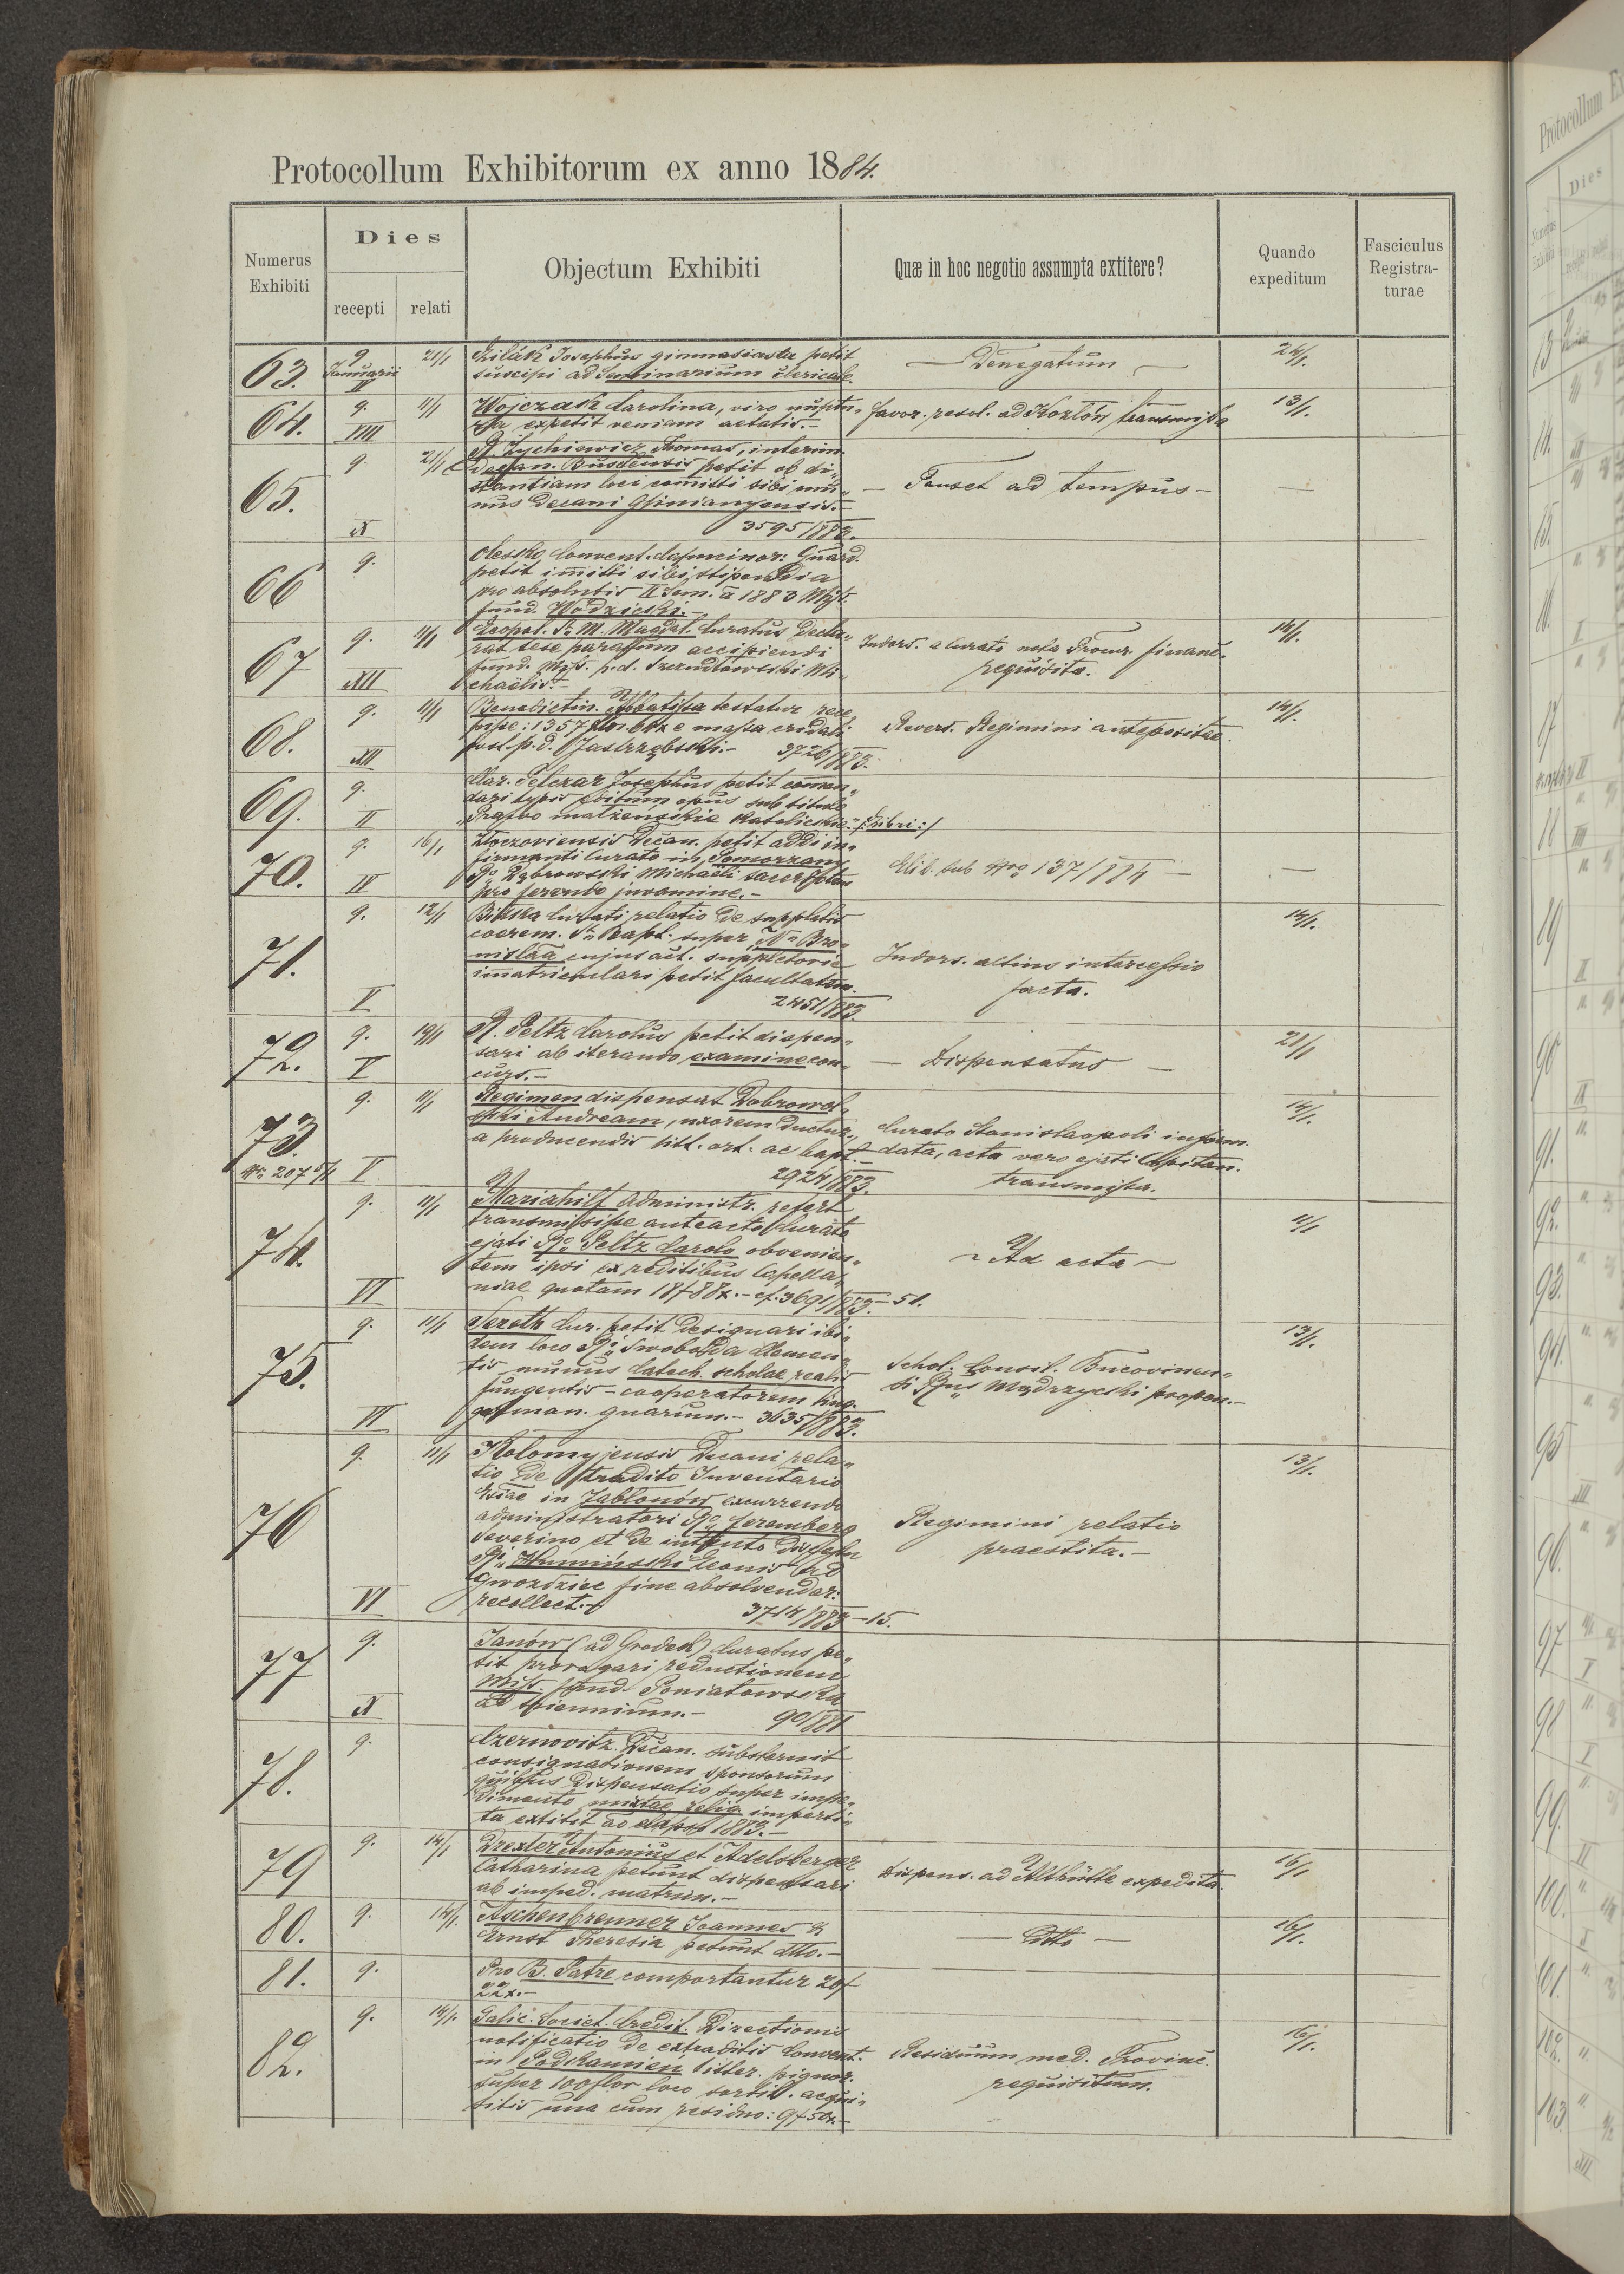 Protocollum Exhibitorum ex anno 1884.
Numerus Exhibiti
Dies
recepti
relati
Objectum Exhibiti
Quæ in hoc negotio assumpta extitere?
Quando expeditum
Fasciculus Registra-
turae
63. 9 Januarii II 21/1
Josephus gimnasiasta petit
suscipi ad Seminarium clericale.
— Denegatum — 24/1.
64. 9. VIII 11/1
Wojczak Carolina, viro nuptu-
expetit veniam aetatis.-
Favor. resol. ad Kozłów transmissa 13/1.
65. 9. X 21/1
R. Zychiewicz Thomas, interim.
Decan. Buscensis petit ob di„
stantiam loci comitti sibi mu„
nus Decani Gliniangensis.-
3595/883.
— Manet ad tempus — —
66 9.
Olessko Convent. Capucinor: Guard.
petit imitti sibi stipendia
pro absolutis II Sem. a 1883 Miss.
fund. Wodzicki.-
67 9. XII 11/1
Leopol. S. M. Magdal. Curatus decla„
rat sese paratum accipiendi
fund. Miss. p.d. Szczudłowski Mi„
chaëlis.-
Indors. a Curato nota Procur. financ.
requisita. 14/1.
68. 9. XII 11/1
Benedictin. Abbatissa testatur rece„
pisse: 1357 e massa cridali
post. p.d. Jastrzębski.- 3726/883.
Revers. Regimini antepositae. 14/1.
69. 9. II
Clar. Pelczar Josephus petit comen„
dari typis editum opus sub titulo
„Prawo małżeńskie katolickie.„
70. 9. IV 16/1
Złoczoviensis Decan. petit addi in„
firmanti Curato in Pomorzany
Ro Dąbrowski Michaëli sacerdotem
pro ferendo juvamine.-
Elib. sub Nro 137/884 — —
71. 9. V 12/1
Bilka Curati relatio de suppletis
caerem. St. Bapt. super Na Bro„
nislaa cujus act. suppletorie
imatriculari petit facultatem.
2451/883.
Indors. altius intercessio
facta. 14/1.
72. 9. V 19/1
R. Peltz Carolus petit dispen„
sari ab iterando examine con„
curs.-
— Dispensatus — 21/1
73. Nr. 207 9. V 11/1
Regimen dispensat Dobrowol„
ski Andream, uxorem ductur.,
a producendis litt. ort. ac bapt.-
2924/883.
Curato Stanislaopoli inform.
data, acta vero ejati Capitan.
transmissa. 14/1.
74. 9. VI 11/1
Mariahilf Administr. refert
transmisisse anteacto Curato
ejati Ro Peltz Carolo obvenien„
tem ipsi ex reditibus Capella„
niae quotam 18f 88x.- cf. 3691/883.- 51.
— Ad acta — 11/1
75. 9. VI 11/1
Sereth Cur. petit designari ibi„
dem loco Ri Swoboda Clemen„
tis munus Catech. scholae realis
fungentis - cooperatorem ling.
german. gnarum.- 3635/883.
Schol. Consil. Bucovinen„
si Rus Mądrzycki propon.- 13/1.
76 9. VI 11/1
Kolomyjensis Decani rela„
tio de tradito Inventario
Esiae in Jabłonów excurrendo
administratori Ro Ceremberg
Severino et de intento discessu
Ri Humiński Leonis ad
Gwozdziec fine absolvendar:
recollect.- 3714/883 - 15.
Regimini relatio
praestita.- 13/1.
77 9. X
Janów (ad Gródek) Curatus pe„
tit prorogari reductionem
Miss. fund. Poniatowska
ad triennium.- 90/881
78. 9.
Czernovitz. Decan. substernit
consignationem sponsorum
quibus dispensatio super impe„
dimento mixtae relig. imperti„
ta extitit ao elapso 1883.-
79 9. 14/1
Drexler Antonius et Adelsberger
Catharina petunt dispensari
ab imped. matrim.-
Dispens. ad Althütte expedita. 16/1
80. 9. 14/1.
Aschenbrenner Joannes &
Ernst Theresia petunt dtto.-
— Ditto — 16/1.
81. 9.
Pro B. Patre comportantur 20f
22x.-
82. 9. 14/1.
Galic. Societ. Credit. Directionis
notificatio de extraditis Convent.
in Podkamien litter. pignor.
super 100 flor loco sortit. acqui„
sitis una cum residuo: 9f 50x.-
Residuum med. Provinc.
requisitum. 16/1.